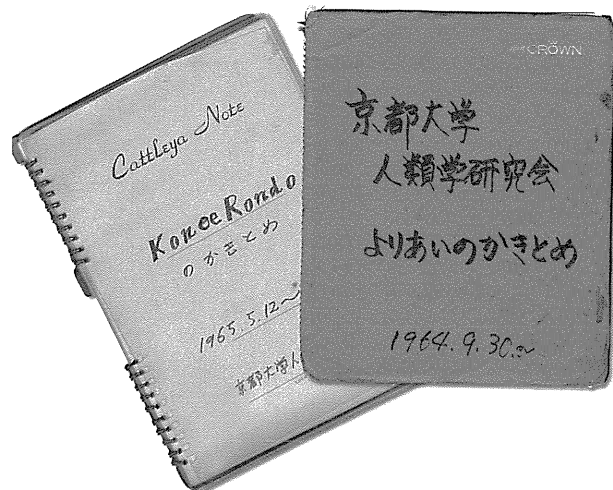 Cattleya Note
Konoe Rondo
のかきとめ
1965.5.12〜
京都大学人
CROWN
京都大学
人類学研究会
よりあいのかきとめ
1964.9.30.〜